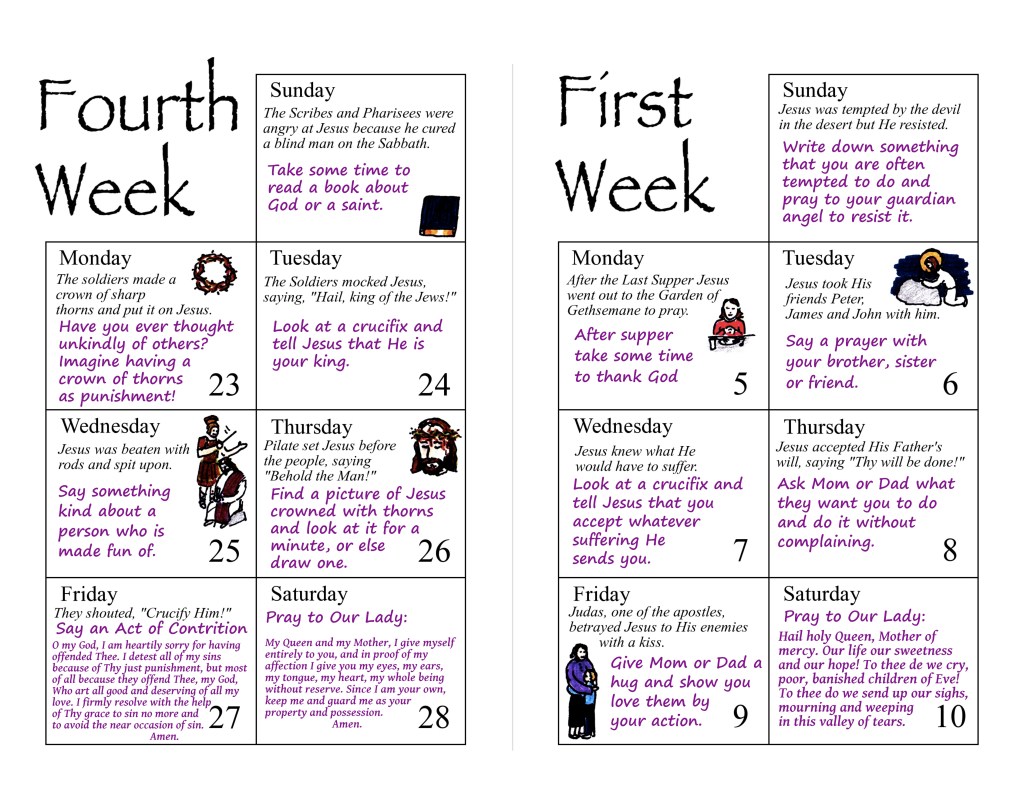 Fourth
Week
Sunday
The Scribes and Pharisees were
angry at Jesus because he cured
a blind man on the Sabbath.
Take some time to
read a book about
God or a saint.
Monday
The soldiers made a
crown of sharp
thorns and put it on Jesus.
Have you ever thought
unkindly of others?
Imagine having a
crown of thorns
as punishment!
23
Tuesday
The Soldiers mocked Jesus,
saying, "Hail, king of the Jews!"
Look at a crucifix and
tell Jesus that He is
your king.
24
Wednesday
Jesus was beaten with
rods and spit upon.
Say something
kind about a
person who is
made fun of.
25
Thursday
Pilate set Jesus before
the people, saying
"Behold the Man!"
Find a picture of Jesus
crowned with thorns
and look at it for a
minute, or else
draw one.
26
Friday
They shouted, "Crucify Him!"
Say an Act of Contrition
O my God, I am heartily sorry for having
offended Thee. I detest all of my sins
because of Thy just punishment, but most
of all because they offend Thee, my God,
Who art all good and deserving of all my
love. I firmly resolve with the help
of Thy grace to sin no more and
to avoid the near occasion of sin.
Amen.
27
Saturday
Pray to Our Lady:
My Queen and my Mother, I give myself
entirely to you, and in proof of my
affection I give you my eyes, my ears,
my tongue, my heart, my whole being
without reserve. Since I am your own,
keep me and guard me as your
property and possession.
Amen.
28
First
Week
Sunday
Jesus was tempted by the devil
in the desert but He resisted.
Write down something
that you are often
tempted to do and
pray to your guardian
angel to resist it.
Monday
After the Last Supper Jesus
went out to the Garden of
Gethsemane to pray.
After supper
take some time
to thank God
5
Tuesday
Jesus took His
friends Peter,
James and John with him.
Say a prayer with
your brother, sister
or friend.
6
Wednesday
Jesus knew what He
would have to suffer.
Look at a crucifix and
tell Jesus that you
accept whatever
suffering He
sends you.
7
Thursday
Jesus accepted His Father's
will, saying "Thy will be done!"
Ask Mom or Dad what
they want you to do
and do it without
complaining.
8
Friday
Judas, one of the apostles,
betrayed Jesus to His enemies
with a kiss.
Give Mom or Dad a
hug and show you
love them by
your action.
9
Saturday
Pray to Our Lady:
Hail holy Queen, Mother of
mercy. Our life our sweetness
and our hope! To thee de we cry,
poor, banished children of Eve!
To thee do we send up our sighs,
mourning and weeping
in this valley of tears.
10